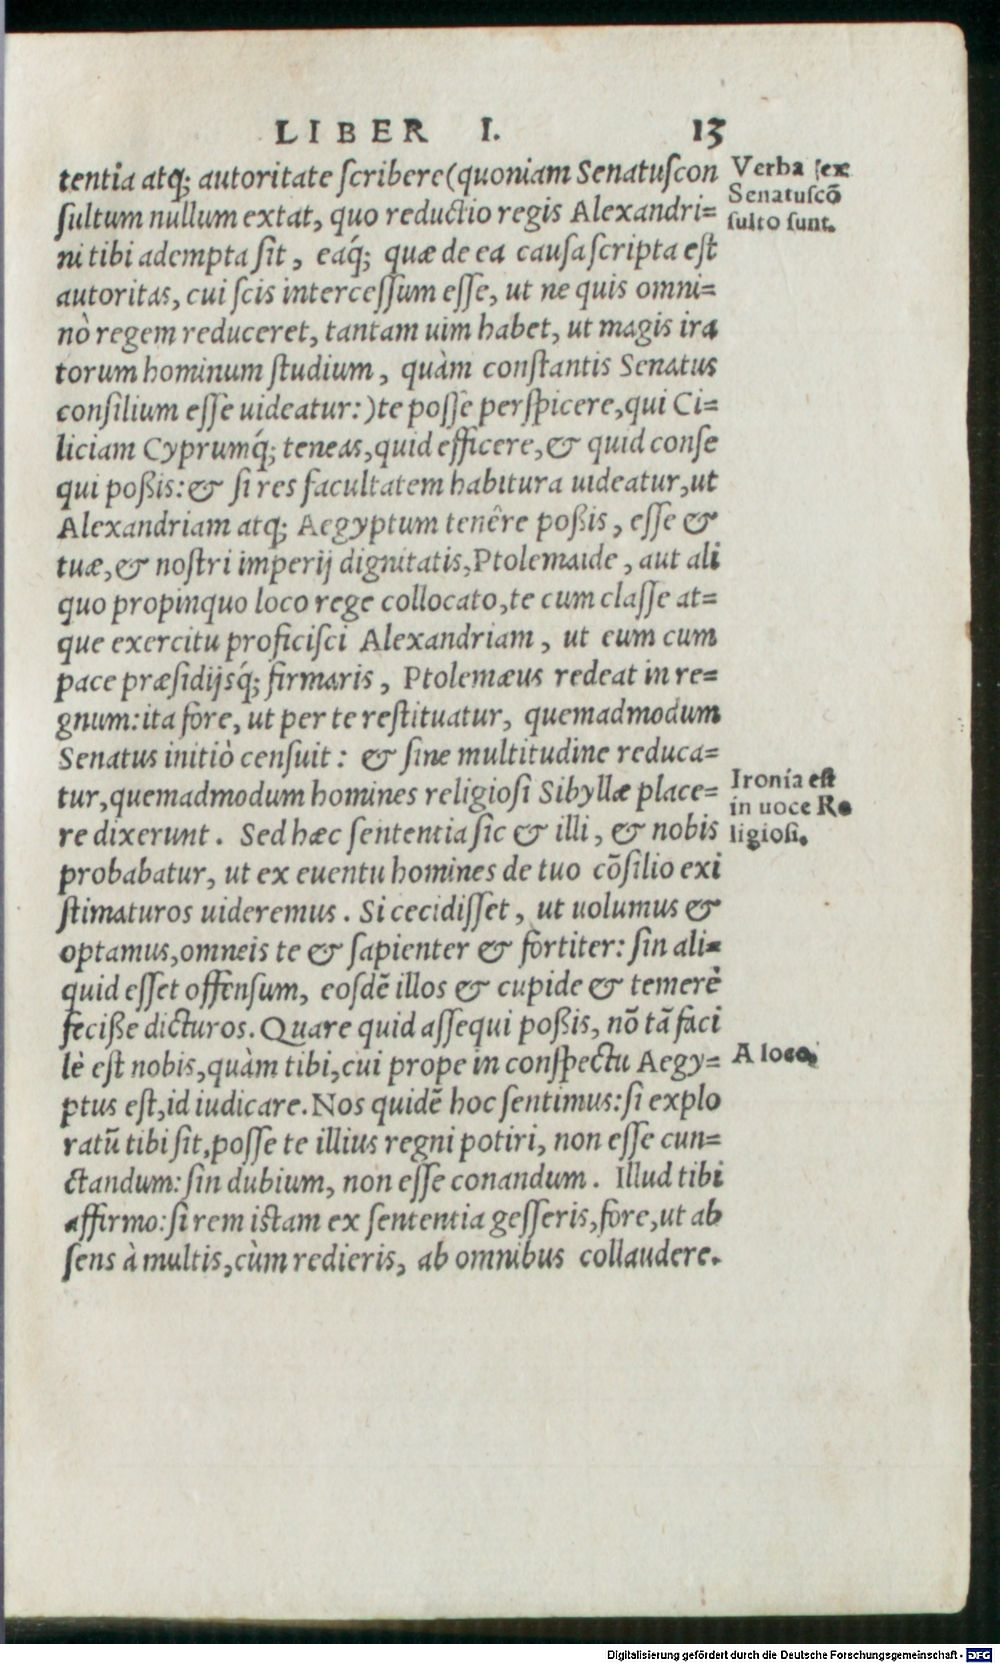 LIBER I. 13
tentia atq; autoritate ſcribere (quoniam Senatuſcon
ſultum nullum extat, quo reductio regis Alexandri=
ni tibi adempta ſit, eaq́; quæ de ea cauſa ſcripta eſt
autoritas, cui ſcis interceſſum eſſe, ut ne quis omni=
nò regem reduceret, tantam uim habet, ut magis ira
torum hominum ſtudium, quàm conſtantis Senatus
conſilium eſſe uideatur:) te poſſe perſpicere, qui Ci=
liciam Cyprumq́; teneas, quid efficere, & quid conſe
qui poßis: & ſi res facultatem habitura uideatur, ut
Alexandriam atq; Aegyptum tenêre poßis, eſſe &
tuæ, & noſtri imperij dignitatis, Ptolemaide, aut ali
quo propinquo loco rege collocato, te cum claſſe at=
que exercitu proficiſci Alexandriam, ut eum cum
pace præſidijsq́; firmaris, Ptolemæus redeat in re=
gnum: ita fore, ut per te reſtituatur, quemadmodum
Senatus initiò cenſuit: & ſine multitudine reduca=
tur, quemadmodum homines religioſi Sibyllæ place=
re dixerunt. Sed hæc ſententia ſic & illi, & nobis
probabatur, ut ex euentu homines de tuo cõſilio exi
ſtimaturos uideremus. Si cecidiſſet, ut uolumus &
optamus, omneis te & ſapienter & fortiter: ſin ali=
quid eſſet offenſum, eoſdẽ illos & cupide & temerè
feciße dicturos. Quare quid aſſequi poßis, nõ tã faci
lè eſt nobis, quàm tibi, cui prope in conſpectu Aegy=
ptus eſt, id iudicare. Nos quidẽ hoc ſentimus: ſi explo
ratũ tibi ſit, poſſe te illius regni potiri, non eſſe cun=
ctandum: ſin dubium, non eſſe conandum. Illud tibi
affirmo: ſi rem iſtam ex ſententia geſſeris, fore, ut ab
ſens à multis, cùm redieris, ab omnibus collaudere.
Verba ſex
Senatuſcõ
ſulto ſunt.
Ironia eſt
in uoce Re
ligioſi.
A loco.
Digitalisierung gefördert durch die Deutsche Forschungsgemeinschaft - DFG